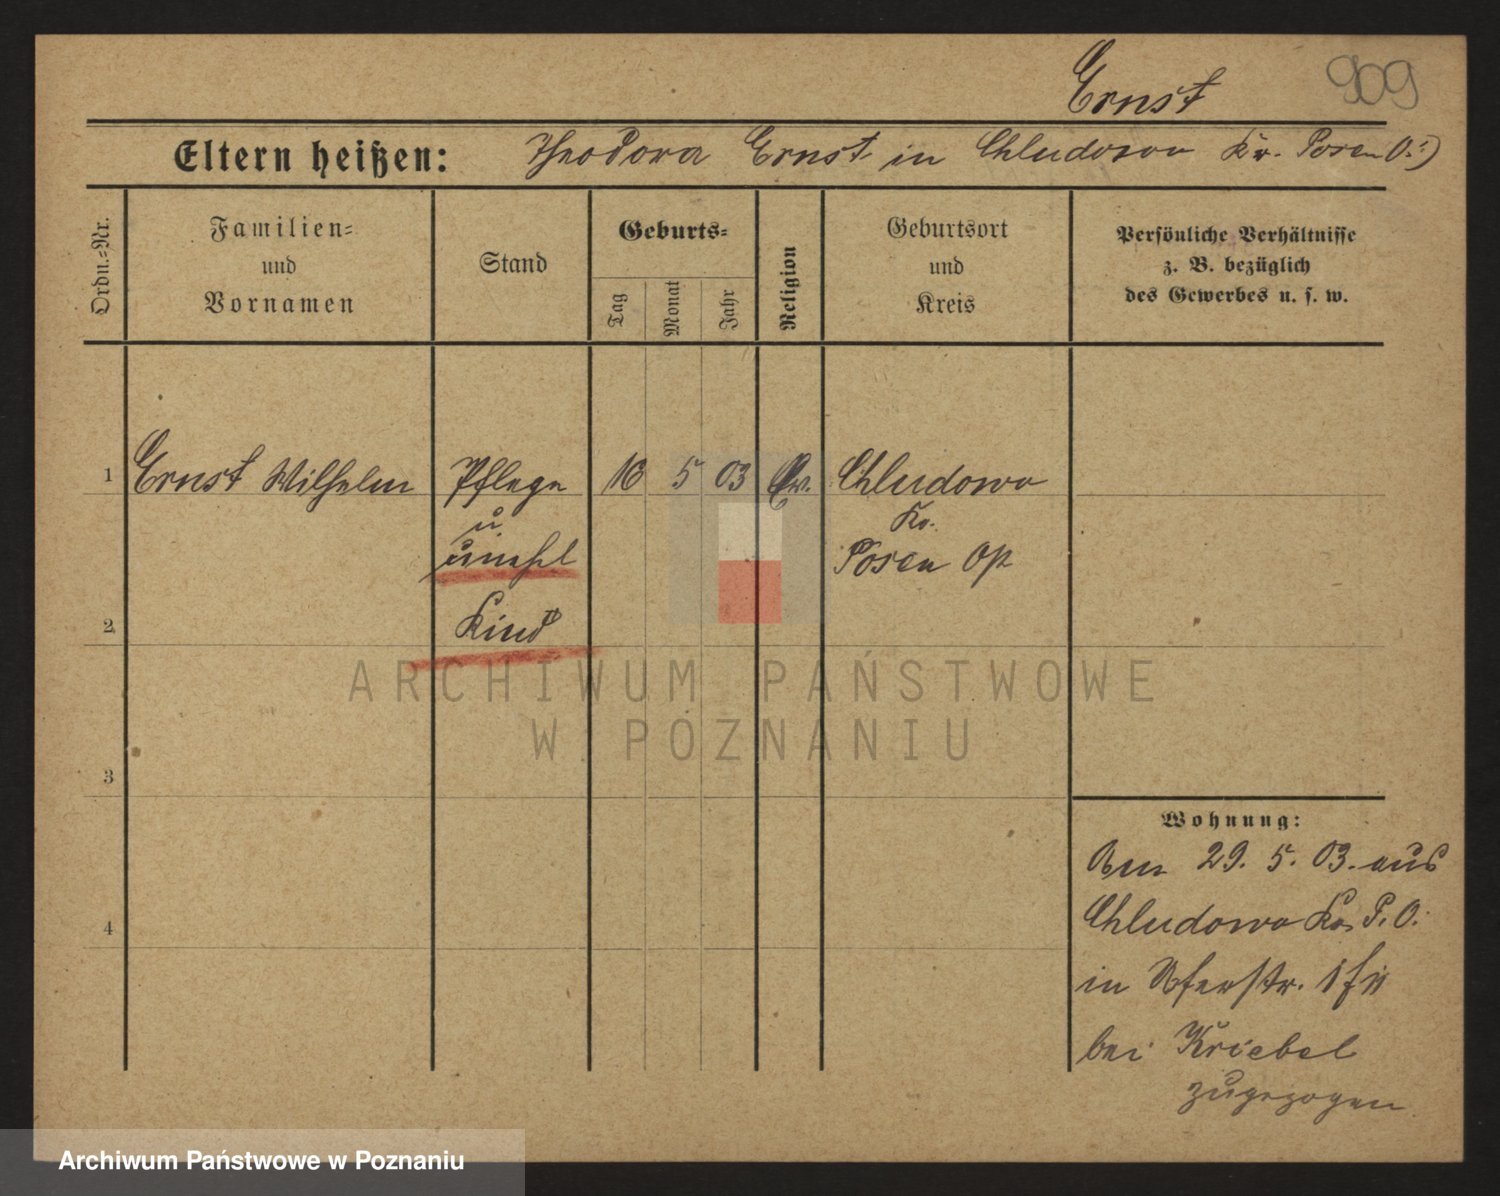 Ernst 909
Eltern heißen: Theodora Ernst in Chludowo Kr. Posen O.)
Ordn.-Nr.
Familien-
und
Vornamen
Stand
Geburts-
Tag
Monat
Jahr
Religion
Geburtsort
und
Kreis
Persönliche Verhältnisse
z. B. bezüglich
des Gewerbes u. s. w.
1 Ernst Wilhelm Pflege 5 03 Ev. Chludowo
u. Kr.
unehl Posen Op
2 Kind
3
4
Wohnung:
Am 29. 5. 03. aus
Chludowo Kr. P. O.
in Uferstr.
bei Kriebel
zugezogen
ARCHIWUM PAŃSTWOWE
W POZNANIU
Archiwum Państwowe w Poznaniu